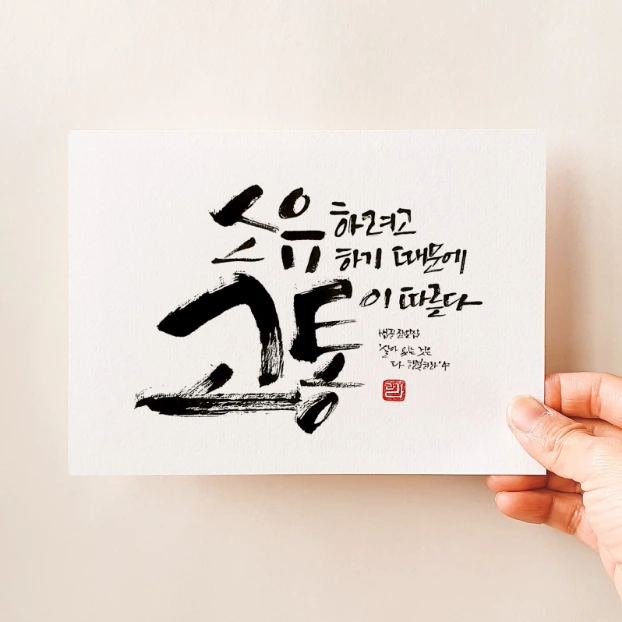 소유하려고
하기 때문에
고통이 따른다
법정 잠언집
'살아 있는 것은
다 행복하라' 中